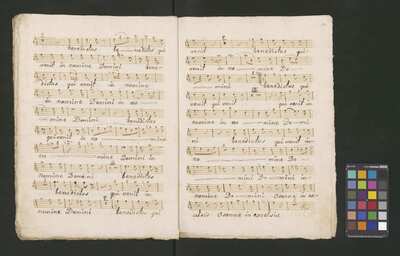 benedictus benedictus qui
venit in nomine Domini bene-
dictus qui venit in nomine
in nomine Domini in no
mine Domini benedictus
qui venit in no
no mine Domini in
nomine Domini benedictus
benedictus qui venit in
nomine Domini benedictus qui
venit benedictus qui
venit in no mine Do
mini benedictus qui
venit qui venit qui venit in
nomine in no mine Do mi
ni benedictus qui venit in
no mine Do
mini Do mini in
no mine Do mini Osanna in ex-
celsis Osanna in excelsis